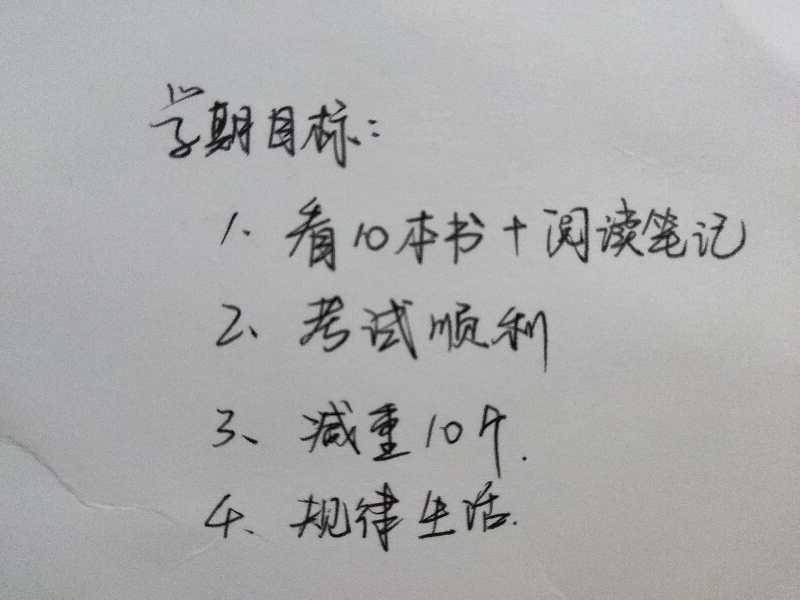 学期目标：
1、看10本书+阅读笔记
2、考试顺利
3、减重10斤.
4、规律生活.